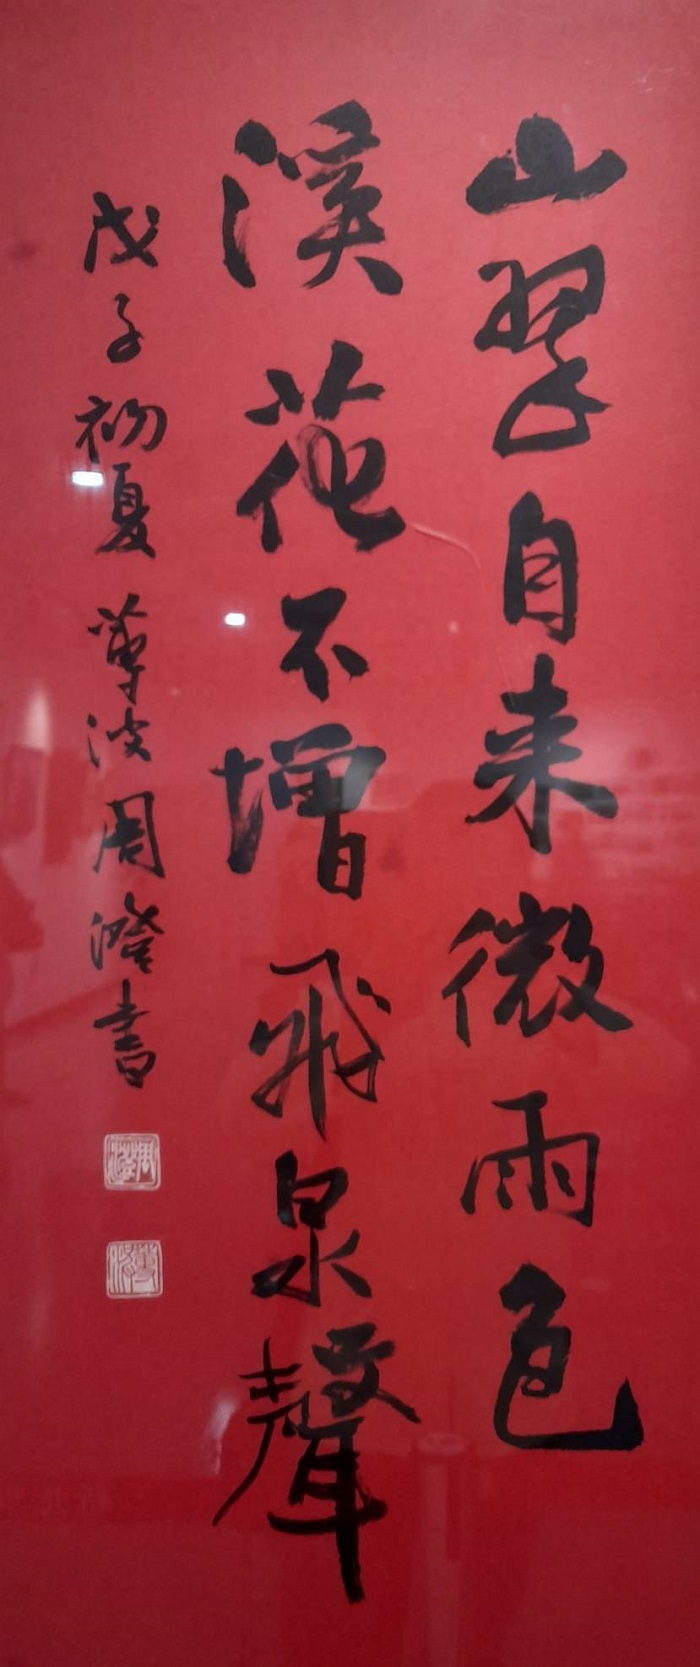 山翠自来微雨色
溪花不增飛泉聲
戊子初夏 萍波周澄書